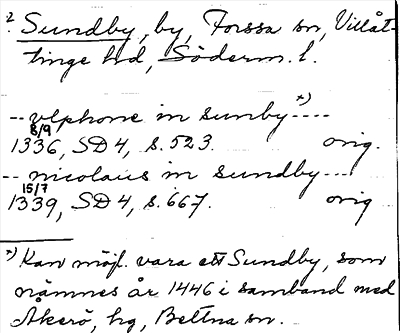 2. Sundby, by, Forssa sn, Villåt-
tinge hd, Söderm. l.
-- vlphone in sunby *) ----
8/9
1336, SD 4, s. 523. orig.
-- nicolaus in sundby ---
15/7
1339, SD 4, s. 667. orig
*) Kan möjl. vara ett Sundby, som
nämnes år 1446 i samband med
Åkerö, hg, Bettna sn.